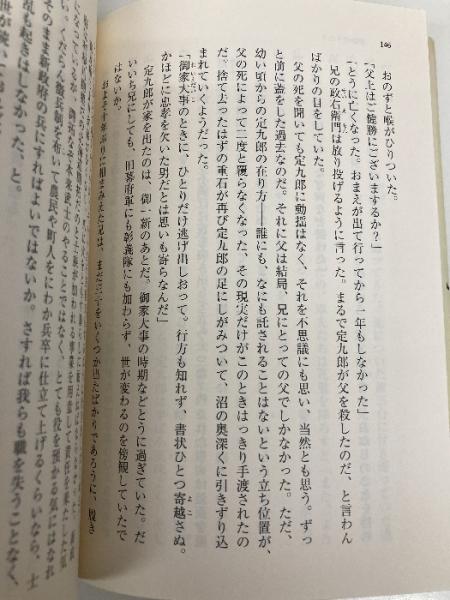 146
おのずと喉がひりついた。
「父上はご健勝にございまするか？」
「とうに亡くなった。おまえが出て行ってから一年もしなかった」
兄の政右衛門は放り投げるように言った。まるで定九郎が父を殺したのだ、と言わん
ばかりの目をしていた。
父の死を聞いても定九郎に動揺はなく、それを不思議にも思い、当然とも思う。ずっ
と前に蓋をした過去なのだ。それに父は結局、兄にとっての父でしかなかった。ただ、
幼い頃からの定九郎の在り方――誰にも、なにも託されることはないという立ち位置が、
父の死によって二度と覆らなくなった、その現実だけがこのときはっきり手渡されたの
だ。捨て去ったはずの重石が再び定九郎の足にしがみついて、沼の奥深くに引きずり込
まれていくようだった。
「御家大事のときに、ひとりだけ逃げ出しおって。行方も知れず、書状ひとつ寄越さぬ。
かほどに忠孝を欠いた男だとは思いも寄らなんだ」
定九郎が家を出たのは、御一新のあとだ。御家大事の時期などとうに過ぎていた。だ
いいち兄にしても、旧幕府軍にも彰義隊にも加わらず、世が変わるのを傍観していたで
はないか。
およそ十年ぶりに相まみえた兄は、まだ三十をいくつか出たばかりであろうに、
本来武士のやることではなく、とても役を預かる気にはなれ
くだらん徴兵制を布いて農民や町人をにわか兵卒に仕立て上げるくらいなら、士
そのまま新政府の兵とすればよいではないか。さすれば我らも職を失うことなく、
乱も起きはしなかった、と。